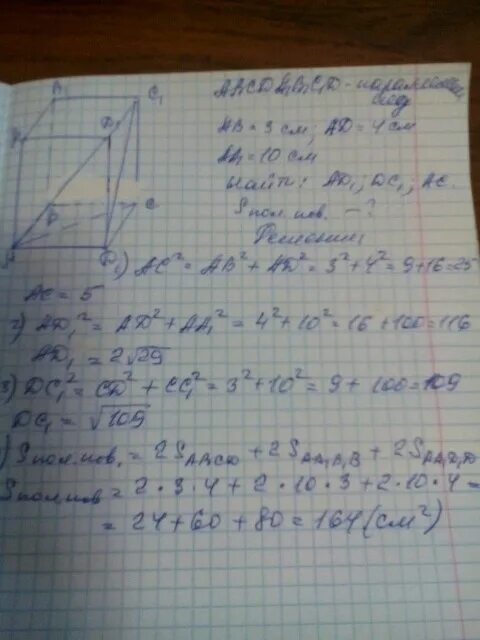 B₁
C₁
A₁
D₁
B
C
A
D
ABCDA₁B₁C₁D₁ - параллелепипед
AB = 3 см; AD = 4 см
AA₁ = 10 см
Найти: AD₁; DC₁; AC.
Sпол.пов. - ?
Решение
1) AC² = AB² + AD² = 3² + 4² = 9 + 16 = 25
AC = 5
2) AD₁² = AD² + AA₁² = 4² + 10² = 16 + 100 = 116
AD₁ = 2√29
3) DC₁² = CD² + CC₁² = 3² + 10² = 9 + 100 = 109
DC₁ = √109
) Sпол.пов. = 2S ABCD + 2S AA₁B₁B + 2S AA₁D₁D
Sпол.пов = 2 · 3 · 4 + 2 · 10 · 3 + 2 · 10 · 4 =
= 24 + 60 + 80 = 164 (см²)